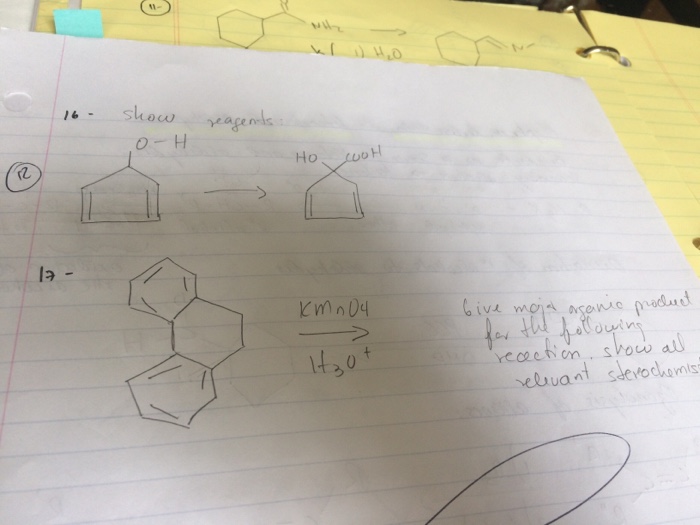 11-
NH2
1) H2O
N-
16- show reagents:
O-H
HO COOH
12
17-
KMnO4
H3O+
Give major organic product
for the following
reaction. show all
relevant stereochemis